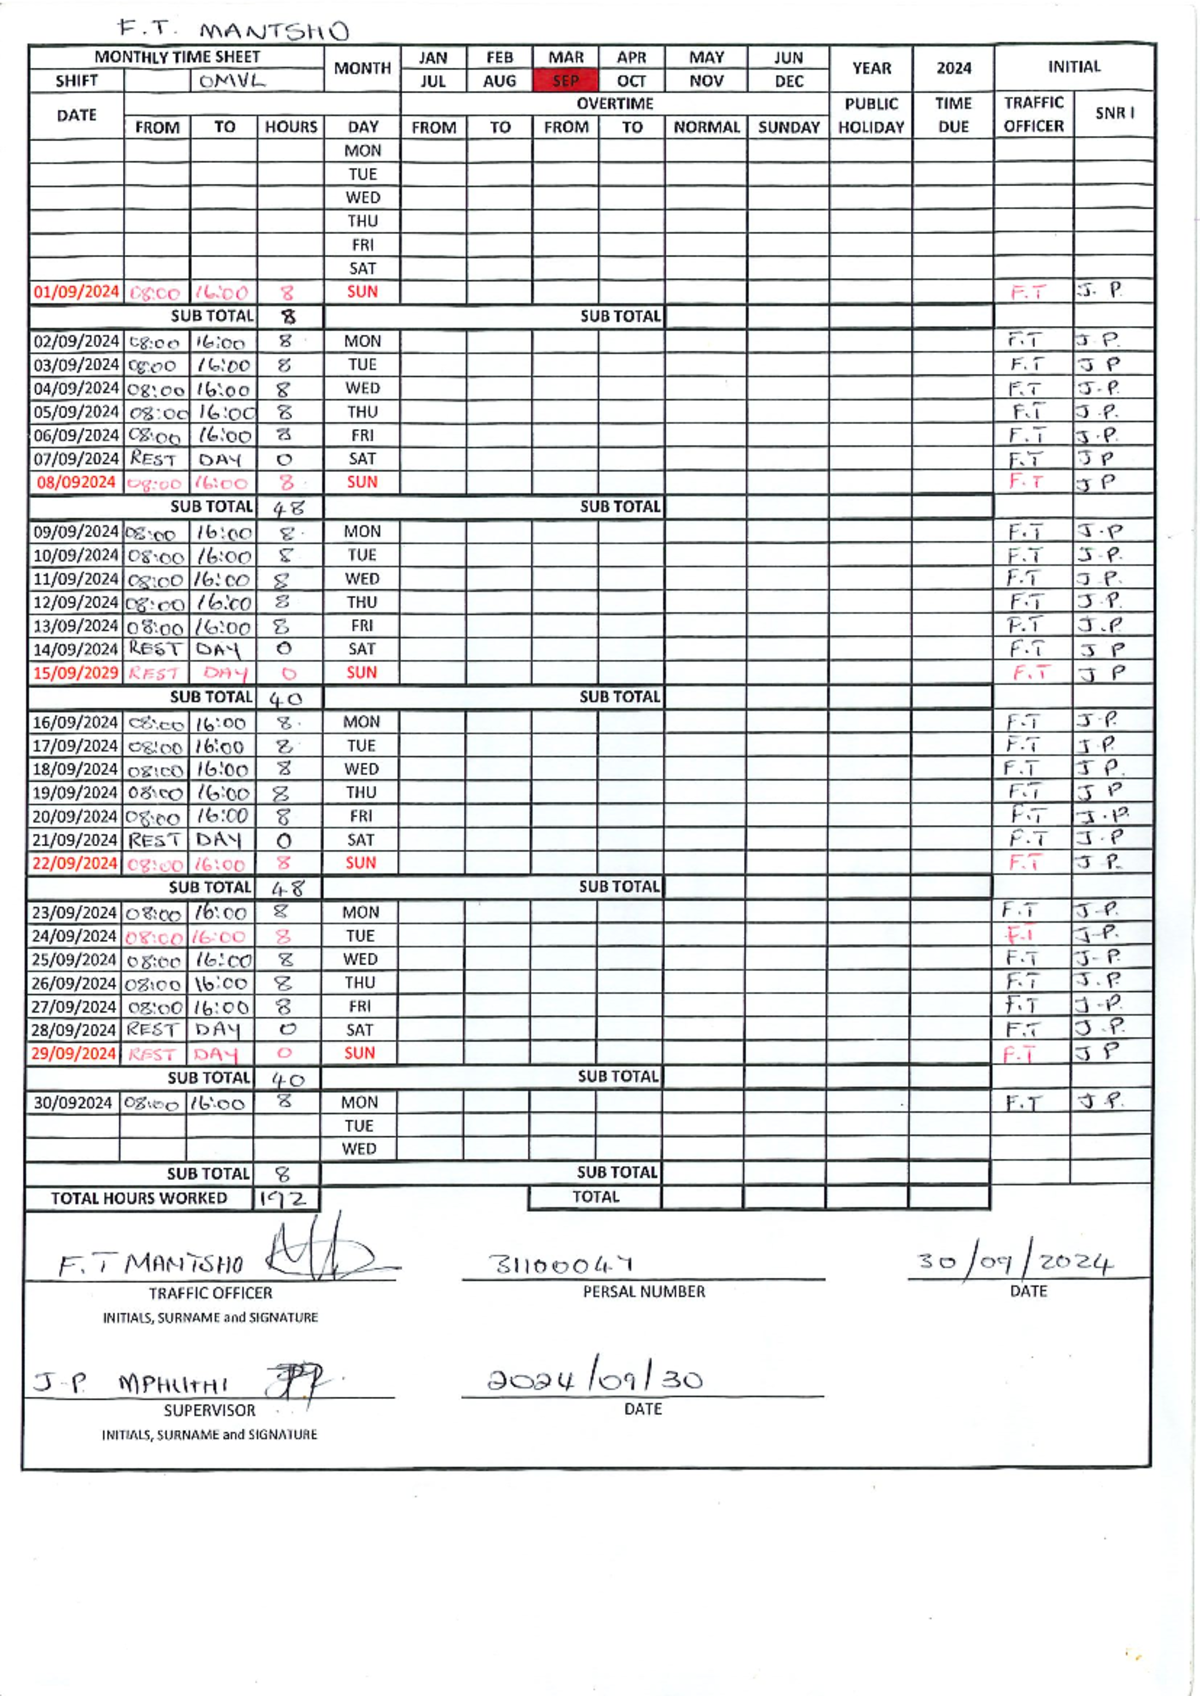 F.T. MANTSHO
MONTHLY TIME SHEET MONTH JAN FEB MAR APR MAY JUN YEAR 2024 INITIAL
SHIFT OMVL JUL AUG SEP OCT NOV DEC
DATE OVERTIME PUBLIC HOLIDAY TIME DUE TRAFFIC OFFICER SNR I
FROM TO HOURS DAY FROM TO FROM TO NORMAL SUNDAY
MON
TUE
WED
THU
FRI
SAT
01/09/2024 08:00 16:00 8 SUN F.T J. P.
SUB TOTAL 8 SUB TOTAL
02/09/2024 08:00 16:00 8 MON F.T J.P.
03/09/2024 08:00 16:00 8 TUE F.T J P
04/09/2024 08:00 16:00 8 WED F.T J.P.
05/09/2024 08:00 16:00 8 THU F.T J.P.
06/09/2024 08:00 16:00 8 FRI F.T J.P.
07/09/2024 REST DAY 0 SAT F.T J P
08/092024 08:00 16:00 8 SUN F.T J P
SUB TOTAL 48 SUB TOTAL
09/09/2024 08:00 16:00 8 MON F.T J.P
10/09/2024 08:00 16:00 8 TUE F.T J.P.
11/09/2024 08:00 16:00 8 WED F.T J.P.
12/09/2024 08:00 16:00 8 THU F.T J.P.
13/09/2024 08:00 16:00 8 FRI F.T J.P
14/09/2024 REST DAY 0 SAT F.T J P
15/09/2029 REST DAY 0 SUN F.T J P
SUB TOTAL 40 SUB TOTAL
16/09/2024 08:00 16:00 8 MON F.T J.P.
17/09/2024 08:00 16:00 8 TUE F.T J.P.
18/09/2024 08:00 16:00 8 WED F.T J P.
19/09/2024 08:00 16:00 8 THU F.T J P
20/09/2024 08:00 16:00 8 FRI F.T J.P.
21/09/2024 REST DAY 0 SAT F.T J.P
22/09/2024 08:00 16:00 8 SUN F.T J P.
SUB TOTAL 48 SUB TOTAL
23/09/2024 08:00 16:00 8 MON F.T J.P.
24/09/2024 08:00 16:00 8 TUE F.T J-P.
25/09/2024 08:00 16:00 8 WED F.T J-P.
26/09/2024 08:00 16:00 8 THU F.T J.P.
27/09/2024 08:00 16:00 8 FRI F.T J-P.
28/09/2024 REST DAY 0 SAT F.T J.P.
29/09/2024 REST DAY 0 SUN F.T J P
SUB TOTAL 40 SUB TOTAL
30/092024 08:00 16:00 8 MON F.T J.P.
TUE
WED
SUB TOTAL 8 SUB TOTAL
TOTAL HOURS WORKED 192 TOTAL
F.T MANTSHO 31100047 30/09/2024
TRAFFIC OFFICER PERSAL NUMBER DATE
INITIALS, SURNAME and SIGNATURE
J-P. MPHUTHI 2024/09/30
SUPERVISOR DATE
INITIALS, SURNAME and SIGNATURE